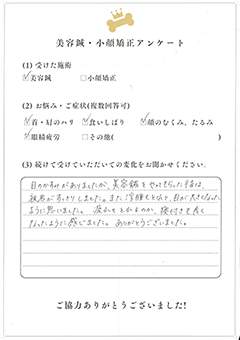 美容鍼・小顔矯正アンケート
(1) 受けた施術
☑美容鍼 □小顔矯正
(2) お悩み・ご症状(複数回答可)
☑首・肩のハリ ☑食いしばり ☑顔のむくみ、たるみ
☑眼精疲労 □その他( )
(3) 続けて受けていただいての変化をお聞かせください。
目のかすみがありましたが、美容鍼をやってもらった手後は、
視界がすっきりしました。また浮腫もとれて、目が大きくなった
ように思いました。疲れもとれるのか、寝付きも良く
なったように感じました。ありがとうございました。
ご協力ありがとうございました!